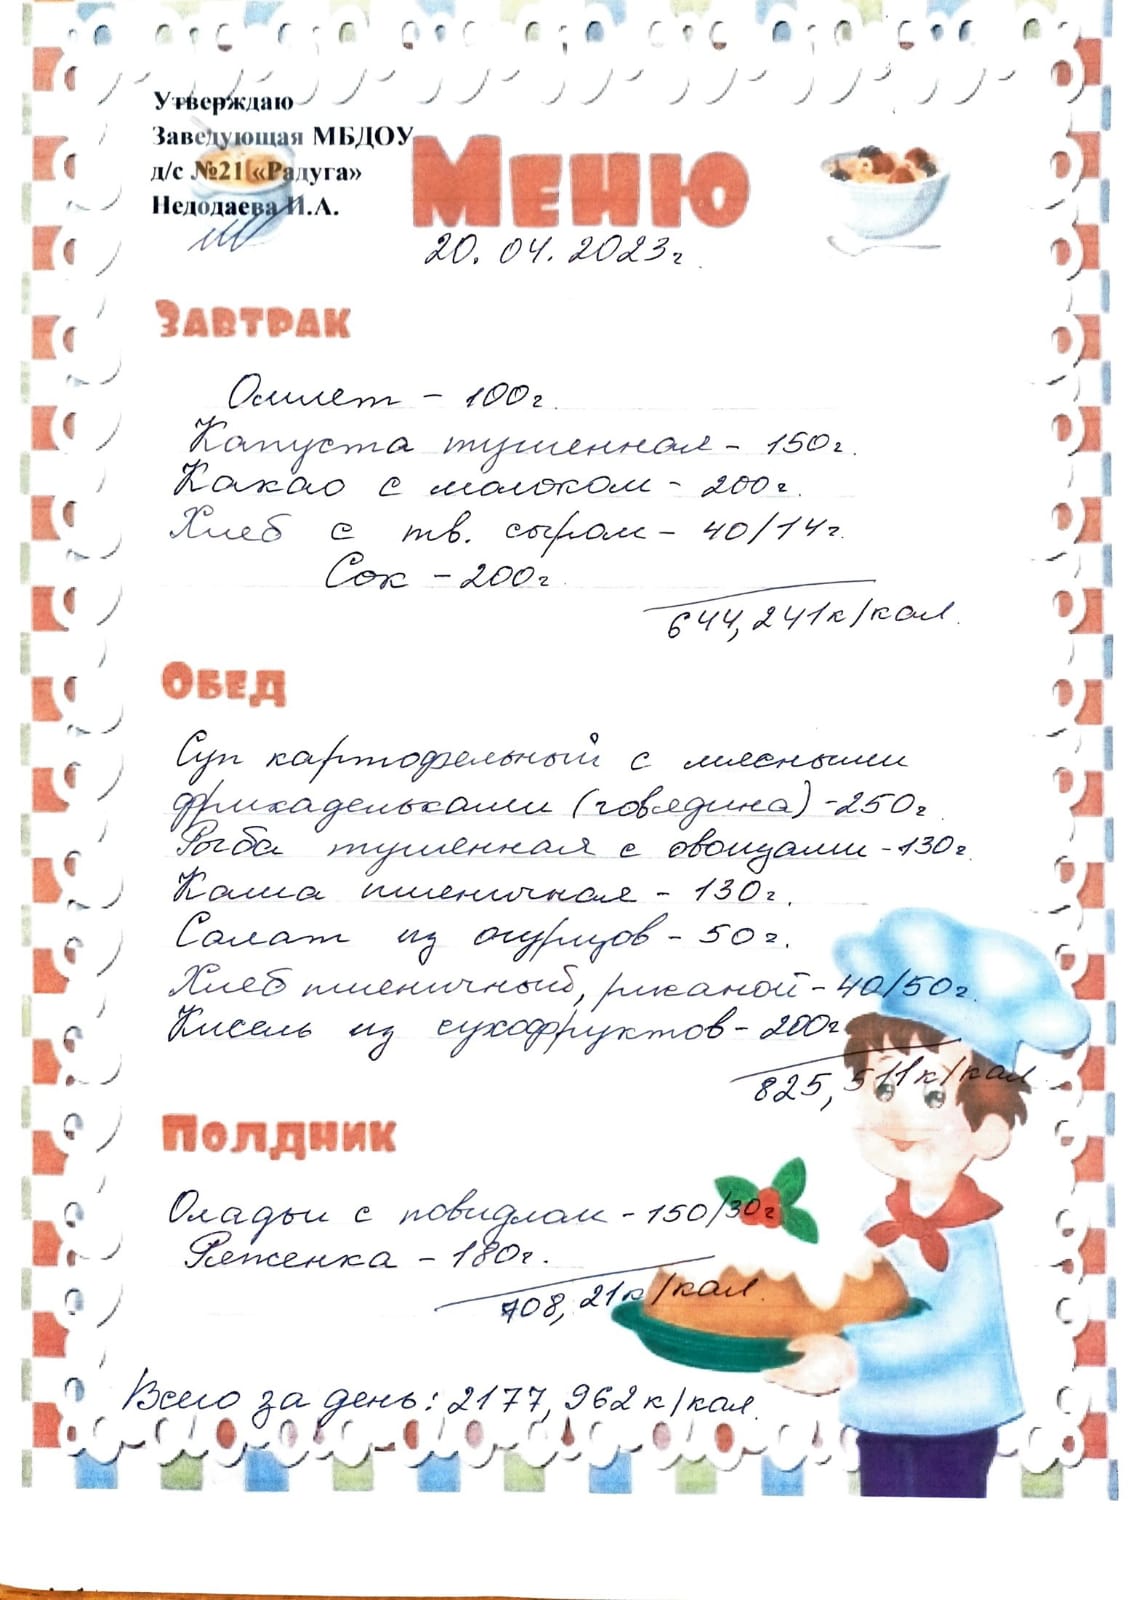 Утверждаю
Заведующая МБДОУ
д/с №21 «Радуга»
Недодаева И.А.
Меню
20.04.2023г.
Завтрак
Омлет - 100г.
Капуста тушенная - 150г.
Какао с молоком - 200г.
Хлеб с тв. сыром - 40/14г.
Сок - 200г.
644,241к/кал.
Обед
Суп картофельный с мясными
фрикадельками (говядина) - 250г.
Рыба тушенная с овощами - 130г.
Каша пшеничная - 130г.
Салат из огурцов - 50г.
Хлеб пшеничный, ржаной - 40/50г.
Кисель из сухофруктов - 200г
825,511к/кал
Полдник
Оладьи с повидлом - 150/30г
Ряженка - 180г.
708,21к/кал.
Всего за день: 2177,962к/кал.